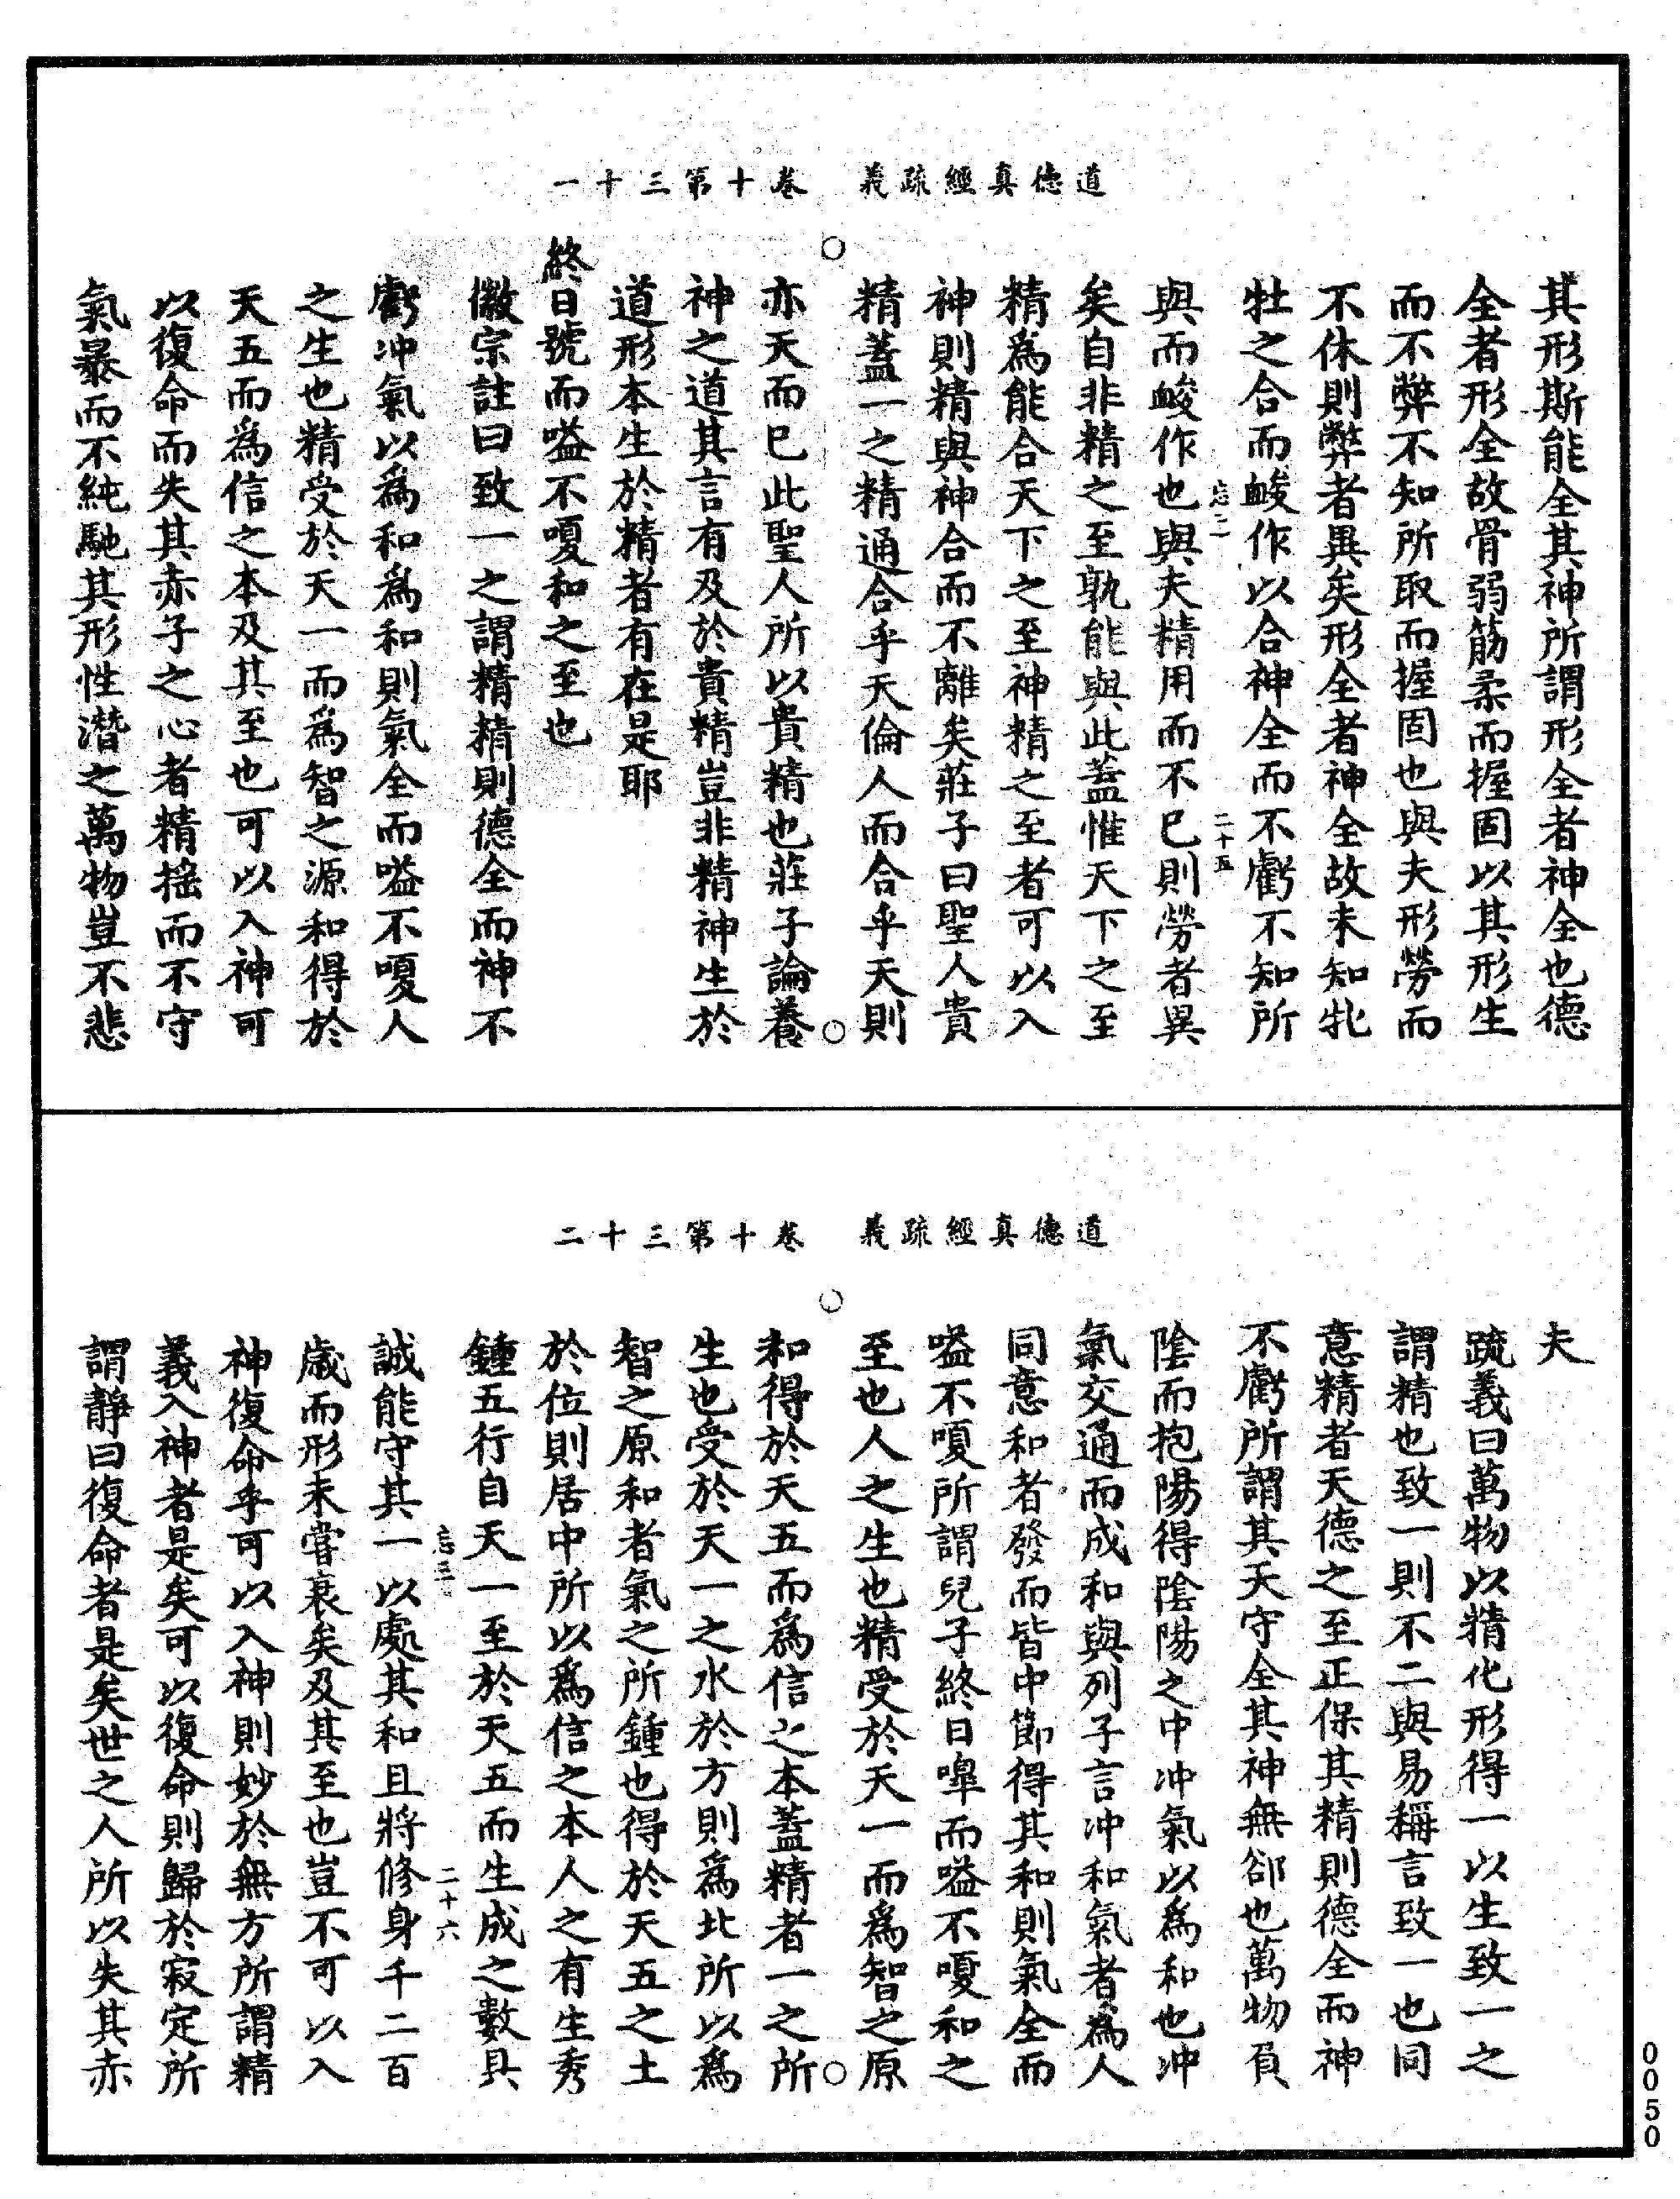 道德真經疏義　卷十第三十一
其形斯能全其神所謂形全者神全也德
全者形全故骨弱筋柔而握固以其形生
而不弊不知所取而握固也與夫形勞而
不休則弊者異矣形全者神全故未知牝
牡之合而峻作以合神全而不虧不知所
忘二　二十五
與而峻作也與夫精用而不已則勞者異
矣自非精之至孰能與此蓋惟天下之至
精為能合天下之至神精之至者可以入
神則精與神合而不離矣莊子曰聖人貴
精蓋一之精通合乎天倫人而合乎天則
亦天而已此聖人所以貴精也莊子論養
神之道其言有及於貴精豈非精神生於
道形本生於精者有在是耶
終日號而嗌不嗄和之至也
徽宗註曰致一之謂精精則德全而神不
虧冲氣以為和為和則氣全而嗌不嗄人
之生也精受於天一而為智之源和得於
天五而為信之本及其至也可以入神可
以復命而失其赤子之心者精搖而不守
氣暴而不純馳其形性潛之萬物豈不悲
道德真經疏義　卷十第三十二
夫
疏義曰萬物以精化形得一以生致一之
謂精也致一則不二與易稱言致一也同
意精者天德之至正保其精則德全而神
不虧所謂其天守全其神無郤也萬物負
陰而抱陽得陰陽之中冲氣以為和也冲
氣交通而成和與列子言冲和氣者為人
同意和者發而皆中節得其和則氣全而
嗌不嗄所謂兒子終日嘷而嗌不嗄和之
至也人之生也精受於天一而為智之原
和得於天五而為信之本蓋精者一之所
生也受於天一之水於方則為北所以為
智之原和者氣之所鍾也得於天五之土
於位則居中所以為信之本人之有生秀
鍾五行自天一至於天五而生成之數具
忘三　二十六
誠能守其一以處其和且將修身千二百
歲而形未嘗衰矣及其至也豈不可以入
神復命乎可以入神則妙於無方所謂精
義入神者是矣可以復命則歸於寂定所
謂靜曰復命者是矣世之人所以失其赤
0050